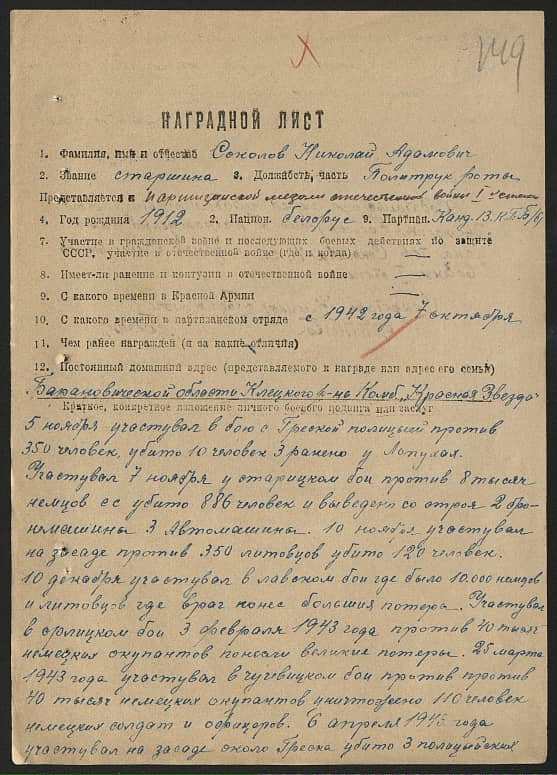 149
НАГРАДНОЙ ЛИСТ
1. Фамилия, имя и отчество Соколов Николай Адамович
2. Звание старшина 3. Должность, часть Политрук роты
Представляется к партизанской медали отечественной войны I степени
4. Год рождния 1912 2. Национ. белорус 9. Партпан. Канд. В.К.П.(б)
7. Участие в гражданской войне и последующих боевых действиях по защите
СССР, участие в отечественной войне (где и когда) —
8. Имеет-ли ранение и контузии в отечественной войне —
9. С какого времени в Красной Армии —
10. С какого времени в партизанском отряде с 1942 года 7 октября
11. Чем ранее награжден (и за какие отличия)
12. Постоянный домашний адрес (представляемого к награде или адрес его семьи)
Барановической области Клецкого р-на Колхб. „Красная Звезда"
Краткое, конкретное изложение личного боевого подвига или заслуг
5 ноября участувал в бою с Греской полицыей против
350 человек, убито 10 человек 3 ранено у
Участувал 7 ноября у старицком бои против 8 тысяч
немцов с с убито 886 человек и выведено со строя 2 бро-
немашины 3 Автомашины. 10 ноября участувал
на засаде против 350 литовцов убито 120 человек.
10 декабря участувал в лавском бои где было 10.000 немцов
и литовцов где враг понес большия потера. Участувал
в орлицком бои 3 февраля 1943 года против 40 тысяч
немецких окупантов понесли великие потеры. 25 марта
1943 года участувал в чучевицком бои против против
40 тысяч немецких окупантов уничтожено 110 человек
немецких солдат и офицеров. 6 апреля 1943 года
участувал на засаде около Греска убито 3 полацыйских